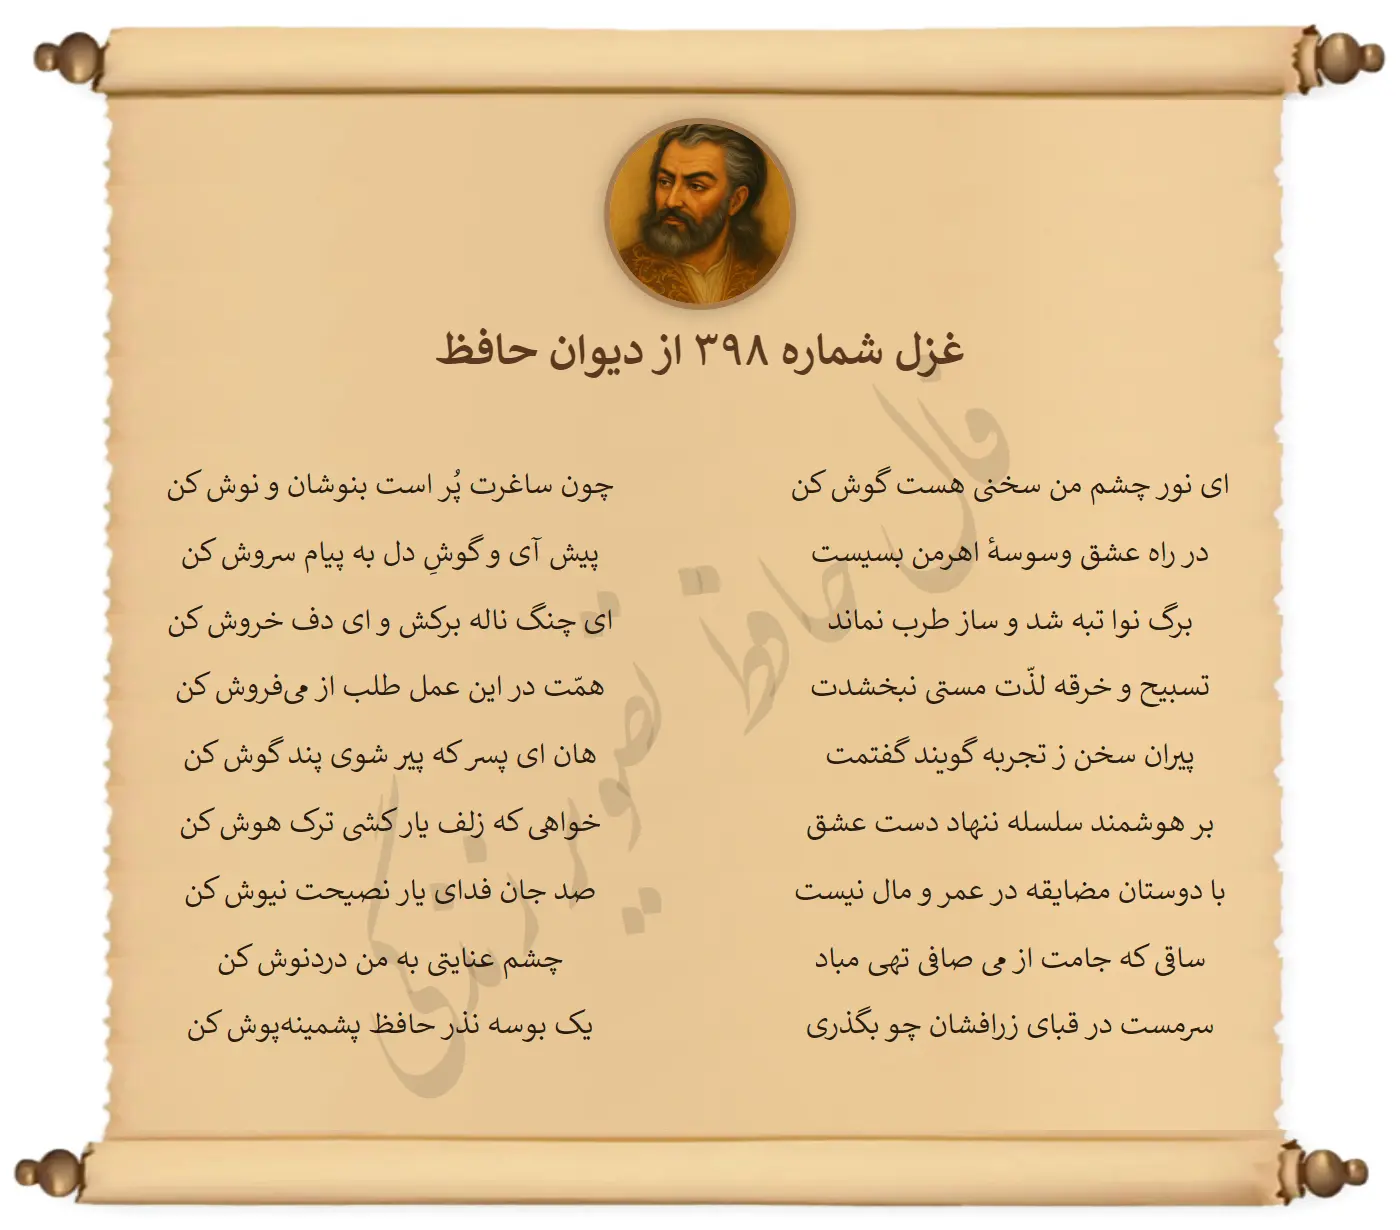 غزل شماره ۳۹۸ از دیوان حافظ
ای نور چشم من سخنی هست گوش کن
چون ساغرت پُر است بنوشان و نوش کن
در راه عشق وسوسهٔ اهرمن بسیست
پیش آی و گوشِ دل به پیام سروش کن
برگ نوا تبه شد و ساز طرب نماند
ای چنگ ناله برکش و ای دف خروش کن
تسبیح و خرقه لذّت مستی نبخشدت
همّت در این عمل طلب از می‌فروش کن
پیران سخن ز تجربه گویند گفتمت
هان ای پسر که پیر شوی پند گوش کن
بر هوشمند سلسله ننهاد دست عشق
خواهی که زلف یار کشی ترک هوش کن
با دوستان مضایقه در عمر و مال نیست
صد جان فدای یار نصیحت نیوش کن
ساقی که جامت از می صافی تهی مباد
چشم عنایتی به من دردنوش کن
سرمست در قبای زرافشان چو بگذری
یک بوسه نذر حافظ پشمینه‌پوش کن
فال حافظ تصویر زندگی